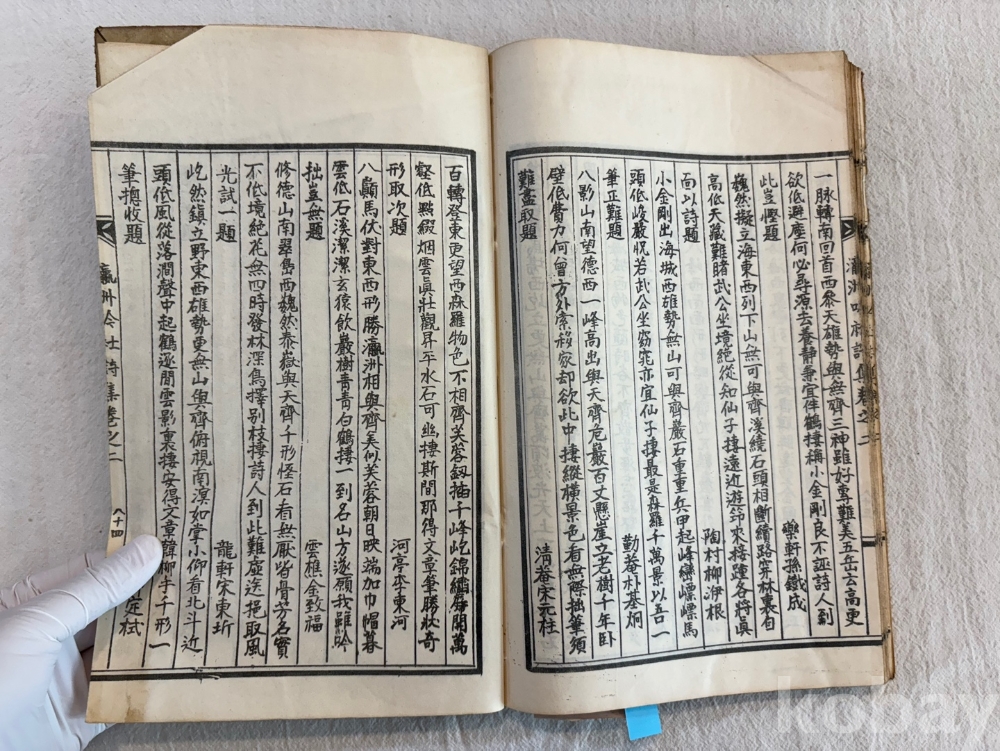 一脉轉南回首西黎天雄勢與無齊三神雖好專難美五岳言高更
欲低避塵何必尋源去養靜兼宜伴鶴捿稱小金剛良不誣詩人到
此豈慳題 樂軒孫鐵成
巍然擬立海東西列下山無可與齊溪繞石頭相斷續路穿林裏自
高低天藏難賭武公坐境絕從知仙子捿遠近遊笻來接踵各將眞
面以詩題 陶村柳洢根
小金剛出海城西雄勢無山可與齊巖石重重兵甲起峰巒嫖嫖馬
頭低峻嚴況若武公坐窈窕亦宜仙子捿最是森羅千萬景以吾一
筆正難題 勤菴朴基炯
八影山南望德西一峰高出與天齊危巖百丈懸崖立老樹千年臥
壁低費力何曾方外索移家却欲此中捿縱橫景色看無際拙筆須
難盡取題 清菴宋元柱
百轉登東更望西森羅物色不相齊芙蓉釼揷千峰屹錦繡屛開萬
壑低點綴烟雲眞壯觀昇平水石可幽捿斯間那得文章筆勝狀奇
形取次題 河亭李東河
八巓馬伏對東西形勝瀛洲相與齊美何芙蓉朝日映端加巾帽暮
雲低石溪潔潔玄猿飮巖樹靑靑白鶴捿一到名山方遂願我雖吟
拙豈無題 雲樵金致福
修德山南翠島西巍然泰嶽與天齊千形怪石看無厭皆骨芳名實
不低境絕花無四時發林深鳥擇別枝捿詩人到此難虛送挹取風
光試一題 龍軒宋東圻
屹然鎭立野東西雄勢更無山與齊俯視南溟如掌小仰看北斗近
頭低風從落澗聲中起鶴逐閒雲影裏捿安得文章韓柳手千形一
筆摠收題
瀛洲吟社詩集卷之二
八十四